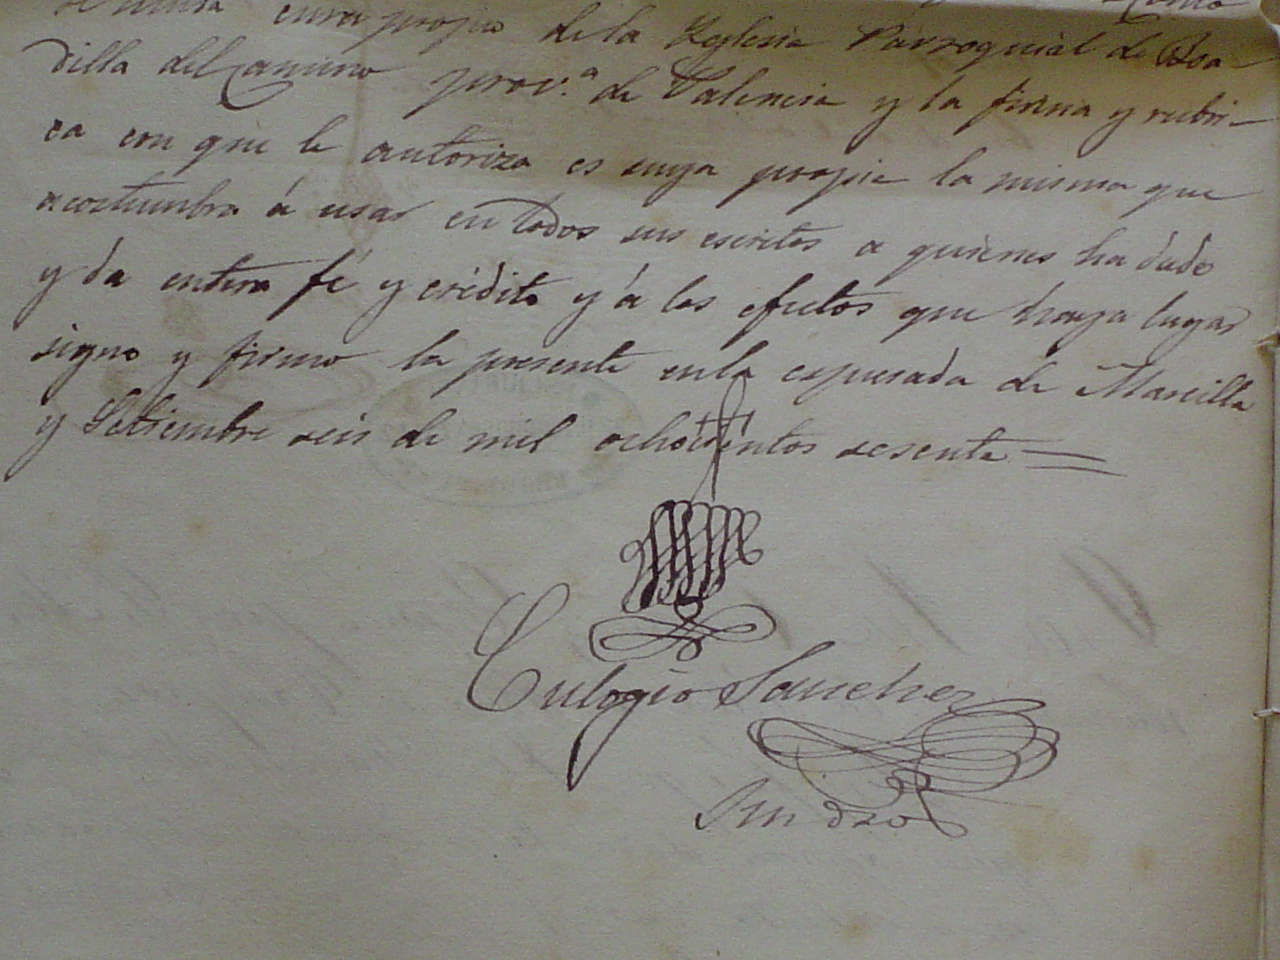 cura propio de la Yglesia Parroquial de Boa
dilla del Camino prov.ª de Palencia y la firma y rubri-
ca con que le autoriza es suya propia la misma que
acostumbra á usar en todos sus escritos a quienes ha dado
y da entera fé y crédito y á los efectos que haya lugar
signo y firmo la presente en la expresada de Marcilla
y Setiembre seis de mil ochocientos sesenta =
Eulogio Sanchez